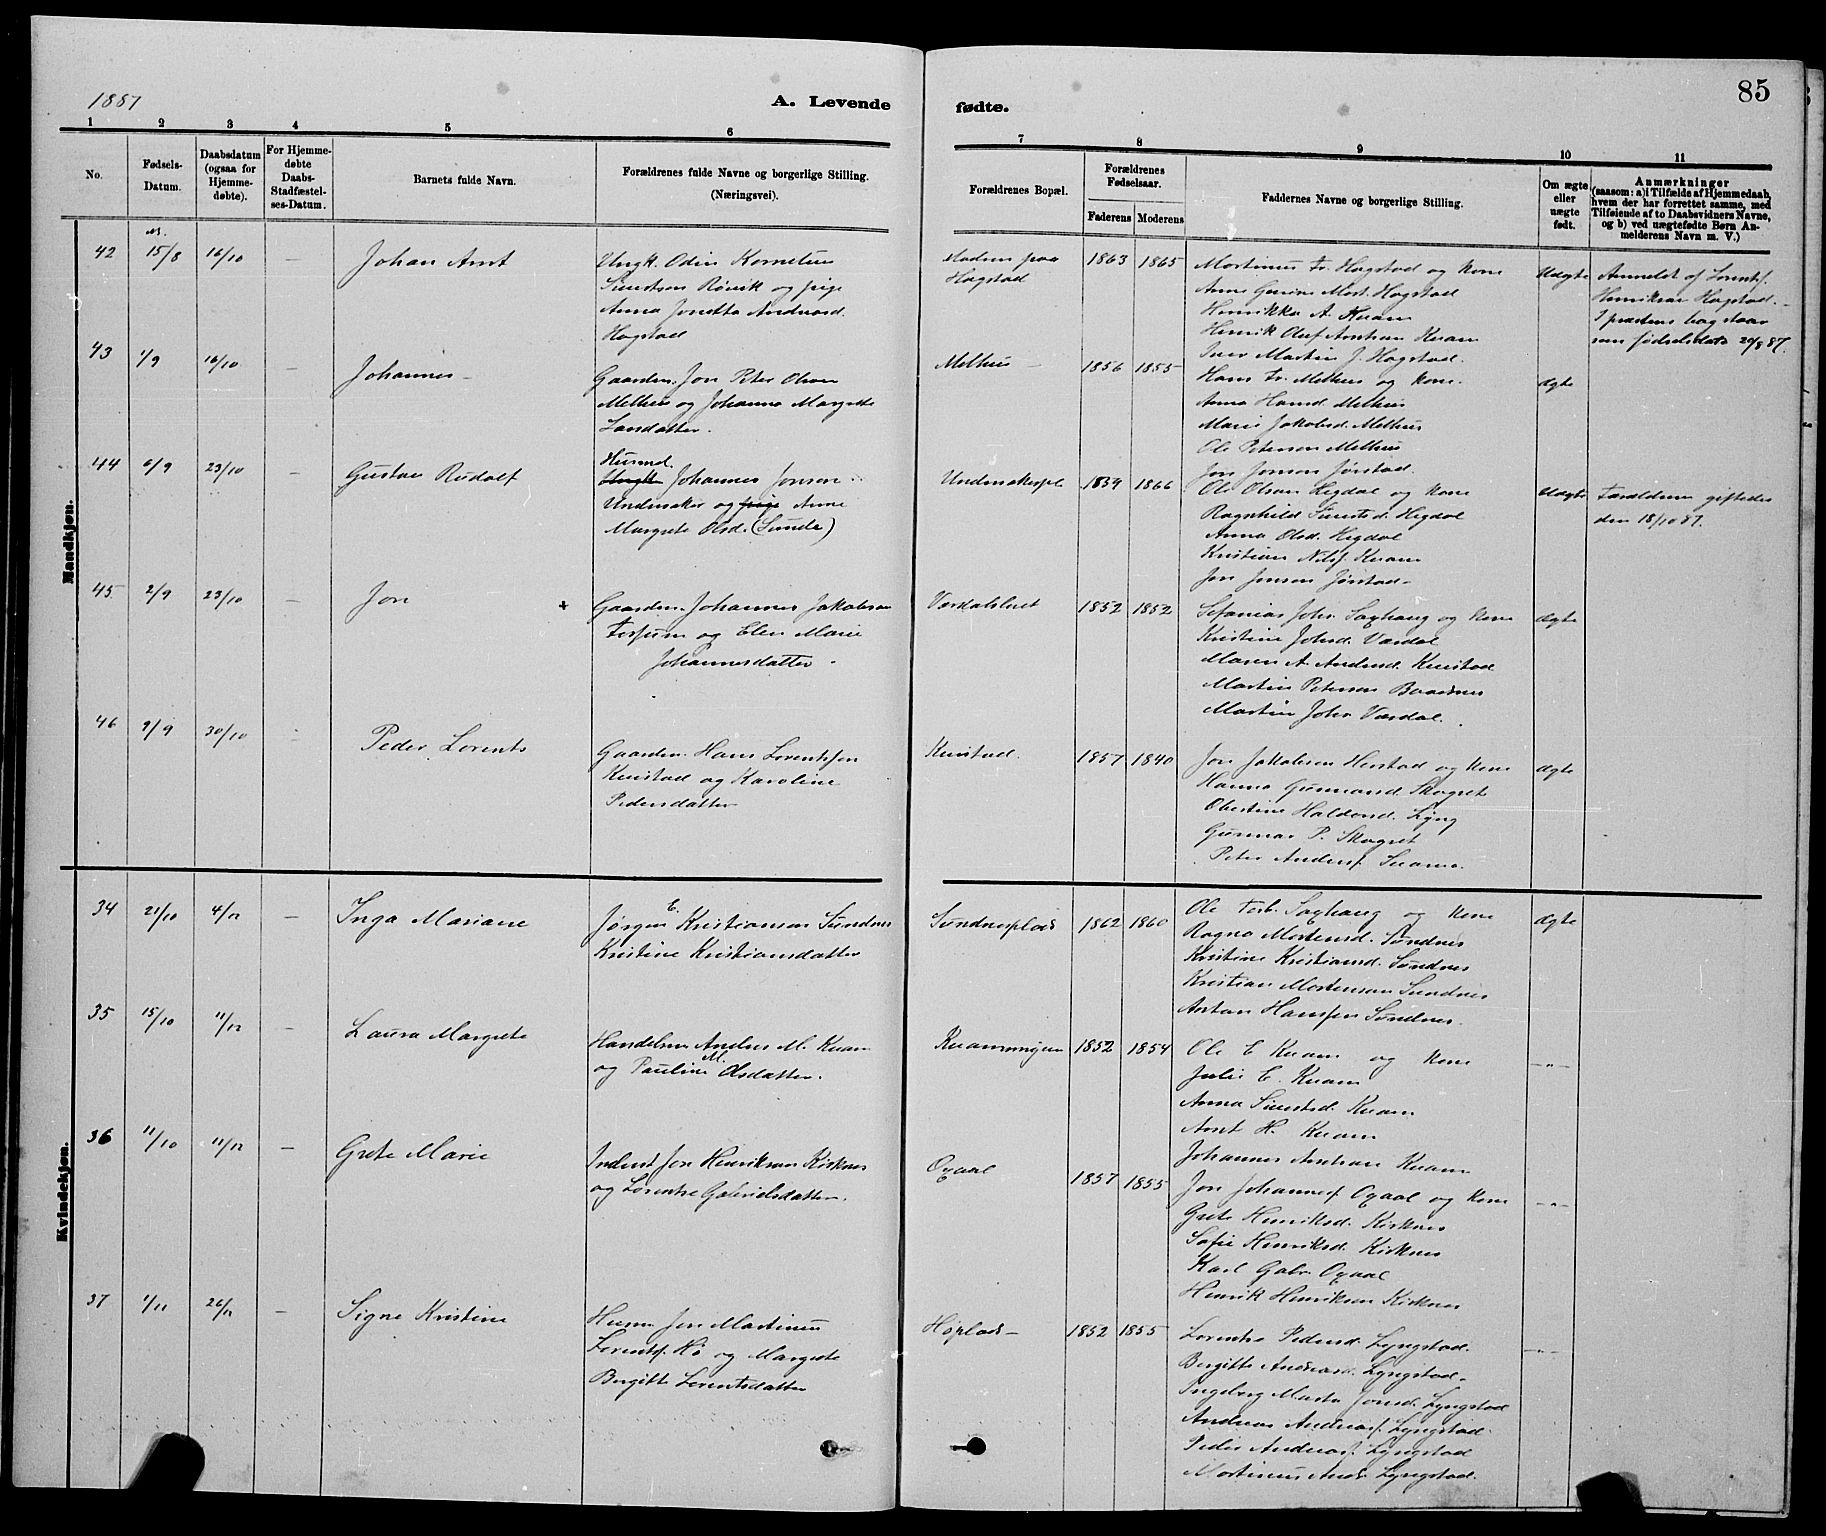 1887
A. Levende
fødte.
85
1 2 3 4 5 6 7 8 9 10 11
No.
Fødsels-Datum.
Daabsdatum (ogsaa for Hjemmedøbte).
For Hjemmedøbte Daabs-Stadfæstelses-Datum.
Barnets fulde Navn.
Forældrenes fulde Navne og borgerlige Stilling.
(Næringsvei).
Forældrenes Bopæl.
Forældrenes Fødselsaar.
Faderens Moderens
Faddernes Navne og borgerlige Stilling.
Om ægte eller uægte født.
Anmærkninger
(saasom: a) i Tilfælde af Hjemmedaab, hvem der har forrettet samme, med Tilføiende af to Daabsvidners Navne, og b) ved uægtefødte Børn Anmelderens Navn m. V.)
Mandkjøn.
42 15/8 16/10 — Johan Arnt
Ungk. Odin Kornelius
Sivertsen Røvik og pige
Anna Jonetta Andreasd.
Hagstad
Moderen paa
Hagstad
1863 1865
Martinus Fr. Hagstad og kone
Anne Gurine Mort. Hagstad
Henrikka A. Kvam
Henrik Oluf Arntsen Kvam
Iver Martin J. Hagstad.
Uægte
Anmeldt af Lorents
Henriksen Hagstad.
I præstens bog staar
som fødselsdato 20/8 87.
43 1/9 16/10 — Johannes
Gaardm. Jon Peter Olsen
Melhus og Johanna Margrete
Larsdatter.
Melhus
1856 1855
Hans Fr. Melhus og kone.
Anna Hansd. Melhus
Marie Jakobsd. Melhus
Ole Petersen Melhus
Jon Jonsen Jørstad.
Ægte
44 6/9 23/10 — Gustav Rudolf
Husmd.
Ungk. Johannes Jonsen
Undersaker og pige Anne
Margrete Olsd. (Sunde)
Undersakerpl.
1834 1866
Ole Olsen Hegdal og kone
Ragnhild Sivertsd. Hegdal
Anna Olsd. Hegdal
Kristian Nilsf. Kvam
Jon Jonsen Jørstad
Uægte
Forældrene giftedes
den 18/10 87.
45. 2/9 23/10 — Jon
+ Gaardm. Johannes Jakobsen
Forfum og Elen Marie
Johannesdatter.
Værdalslvet
1852 1852
Sefanias Johs. Saxhaug og kone
Kristine Johsd. Værdal
Maren A. Andersd. Kvistad
Martin Petersen Baadsnes
Martin Johs. Værdal.
Ægte
46 9/9 30/10 — Peder Lorents
Gaardm. Hans Lorentsen
Kvistad og Karoline
Pedersdatter
Kvistad.
1857 1840
Jon Jakobsen Herstad og kone
Hanna Gunnarsd. Skogset
Oberstine Haldorsd. Lyng
Gunnar P. Skogset
Peter Andersf. Svarva.
Ægte
Kvindekjøn.
34 21/10 4/12 — Inga Mariane
Jørgen E. Kristiansen Sundnes
Kristine Kristiansdatter
Sundnesplads
1862 1860
Ole Torb. Saxhaug og kone
Ragna Mortensd. Sundnes
Kristine Kristiansd. Sundnes
Kristian Mortensen Sundnes
Anton Hansen Sundnes.
Ægte
35 15/10 11/12 — Laura Margrete
Handelsm. Anders M. Kvam
og Pauline M. Olsdatter.
1852 1854
Ole E. Kvam og kone
Julie E. Kvam
Anna Sivertsd. Kvam
Arnt H. Kvam
Johannes Arntsen Kvam
—„—
36 11/10 11/12 — Grete Marie
Inderst Jon Henriksen Kirknes
og Lorentse Gabrielsdatter.
Oxaal
1857 1855
Jon Johannesf. Oxaal og kone
Grete Henriksd. Kirknes
Sofie Henriksd. Kirknes
Karl Gabr. Oxaal
Henrik Henriksen Kirknes
—„—
37 1/11 26/12 — Signe Kristine
Husm. Jon Martinus
Lorentsf. Hø og Margrete
Bergitte Lorentsdatter
Høplads
1852 1855
Lorentse Pedersd. Lyngstad.
Bergitte Andreasd. Lyngstad.
Ingeborg Marta Jonsd. Lyngstad
Andreas Andreasf. Lyngstad.
Peder Andreasf. Lyngstad
Martinus Andr. Lyngstad.
—„—